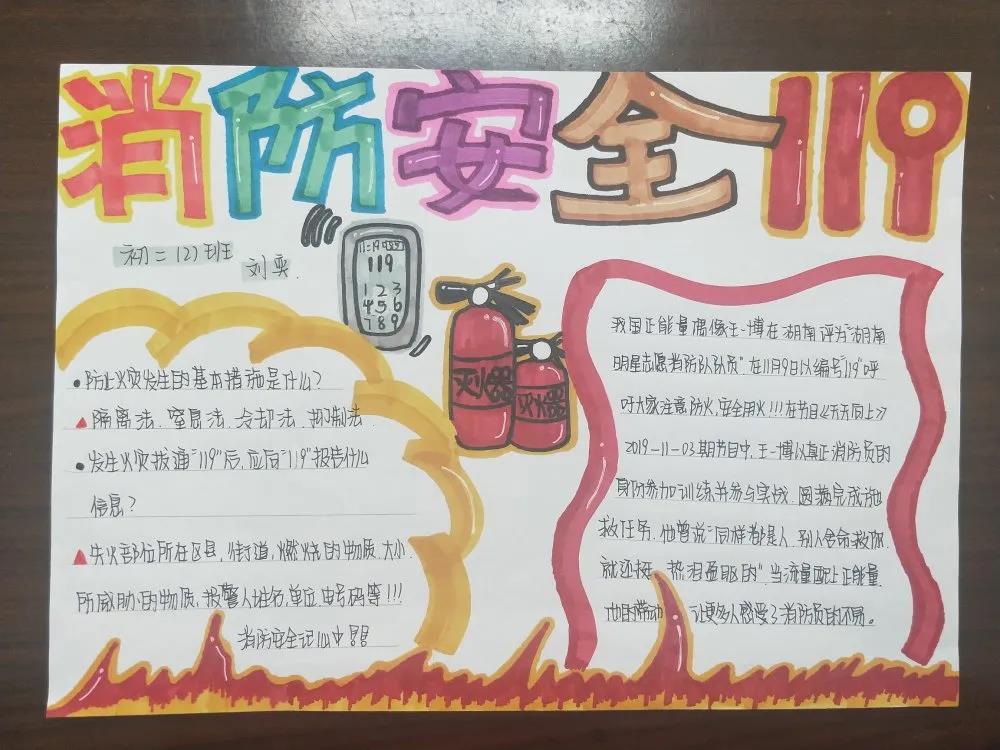 消防安全119
初二(2)班
刘奕.
11=19
119
1 2 3
4 5 6
7 8 9
灭火器
灭火器
•防止火灾发生的基本措施是什么?
▲隔离法.窒息法.冷却法.抑制法.
•发生火灾拔通"119"后,应向"119"报告什么
信息?
▲失火部位所在区县,街道,燃烧的物质.大小.
所威胁的物质,报警人姓名,单位.电号码等!!!
消防安全记心中!!
我国正能量偶像王一博在湖南评为"湖南
明星志愿消防队队员"在11月9日以编号"119"呼
吁大家注意防火,安全用火!!!在节目《天天向上》
2019-11-03期节目中,王一博以真正消防员的
身份参加训练并参与实战.圆满完成施
救任务.他曾说"同样都是人.别人舍命救你
就还挺 热泪盈眶的".当流量配上正能量.
他的带动 让更多人感受了消防员的不易。